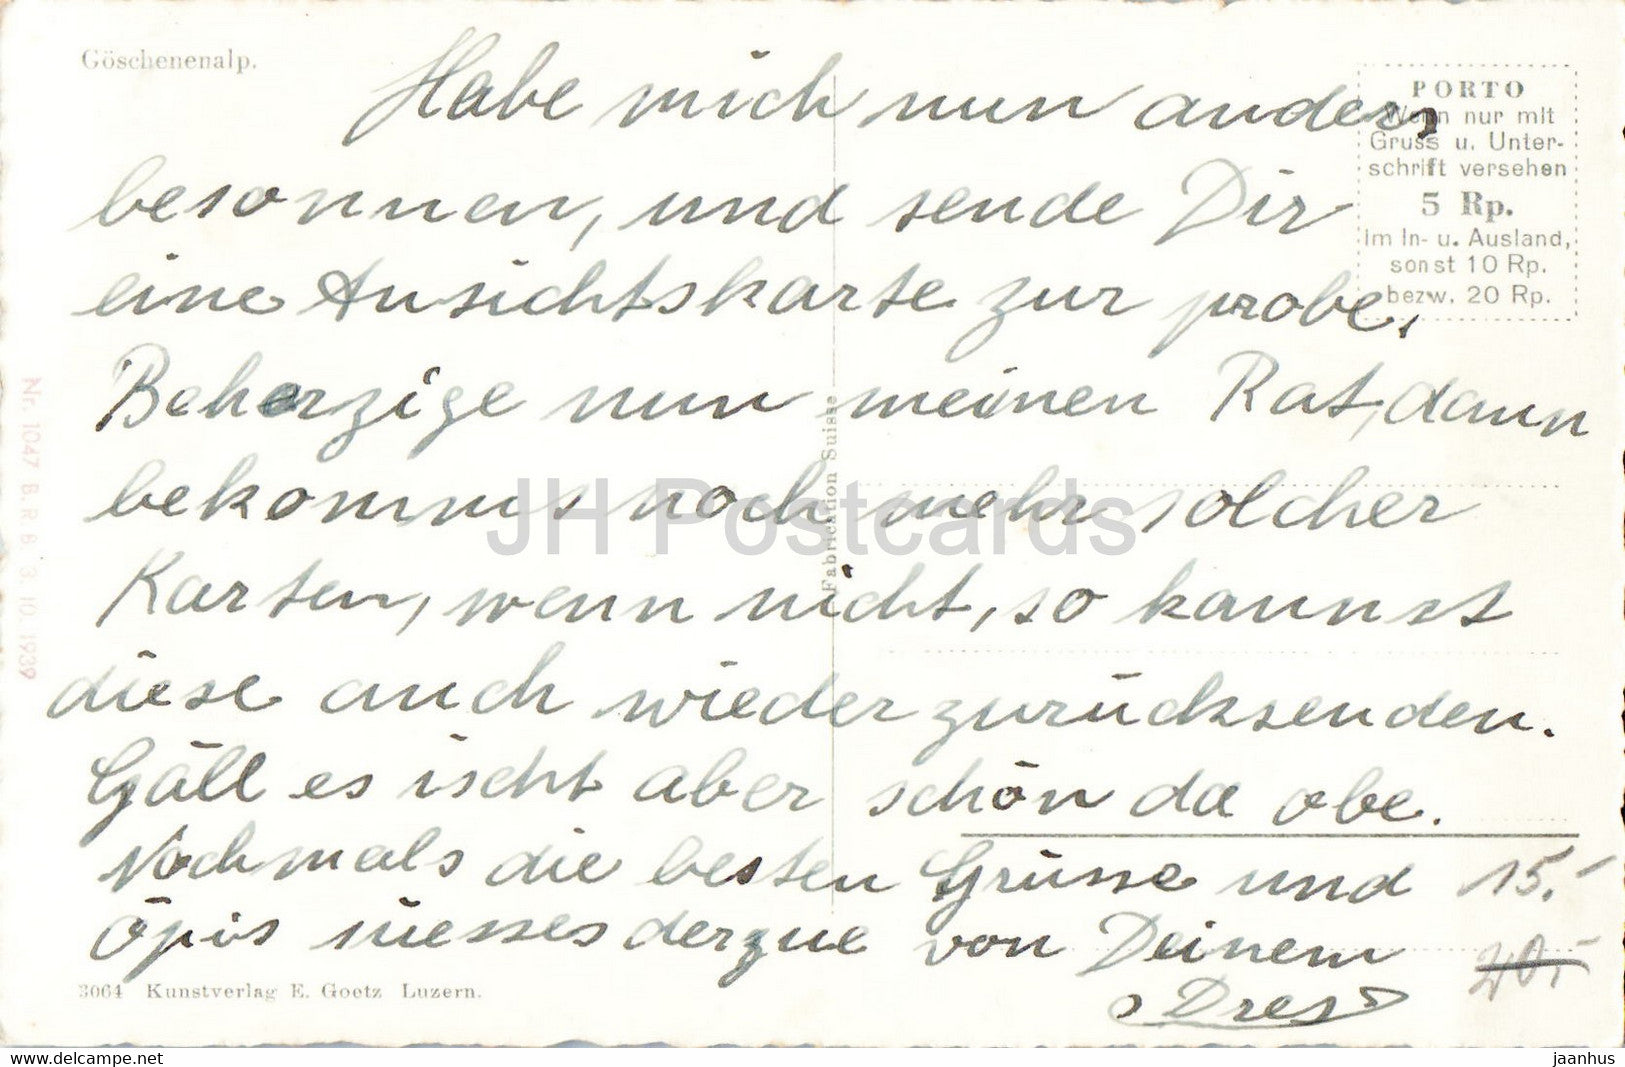 Göschenenalp.
Habe mich nun anders
besonnen, und sende Dir
eine Ansichtskarte zur probe.
Beherzige nun meinen Rat, dann
bekomms noch mehr solcher
Karten, wenn nicht, so kannst
diese auch wieder zurücksenden.
Gäll es ischt aber schön da obe.
Nochmals die besten Grüsse und
öpis süesses derzue von Deinem
Dres
PORTO
Wenn nur mit
Gruss u. Unter-
schrift versehen
5 Rp.
Im In- u. Ausland,
sonst 10 Rp.
bezw. 20 Rp.
Nr. 1047 B. R. 6 3. 10. 1939
Fabrication Suisse
15.-
20.-
3064 Kunstverlag E. Goetz Luzern.
JH Postcards
www.delcampe.net
jaanhus